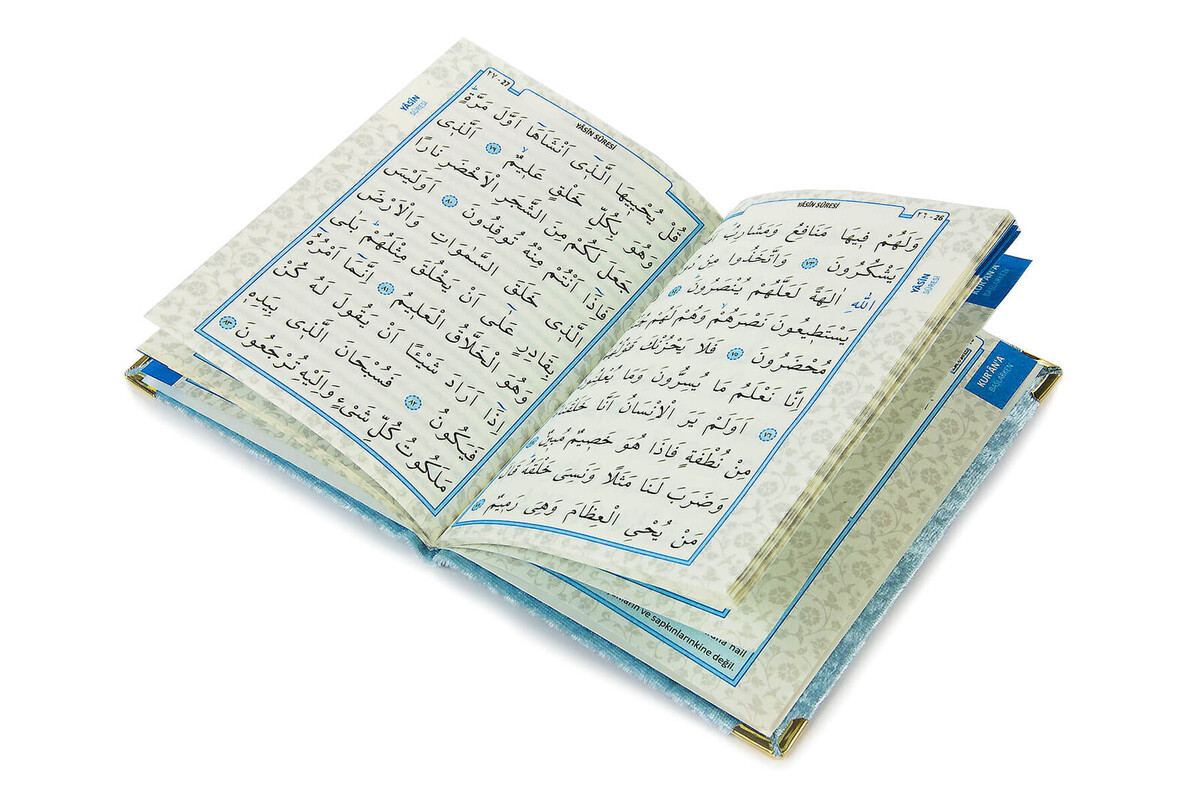 ٢٦ - 26
YÂSÎN SÛRESİ
YÂSÎN
SÛRESİ
وَلَهُمْ فِيهَا مَنَافِعُ وَمَشَارِبُ
يَشْكُرُونَ ﴿٧٣﴾ وَاتَّخَذُوا مِنْ
اللّٰهِ اٰلِهَةً لَعَلَّهُمْ يُنْصَرُونَ ﴿٧٤﴾
يَسْتَطِيعُونَ نَصْرَهُمْ وَهُمْ لَهُمْ
مُحْضَرُونَ ﴿٧٥﴾ فَلَا يَحْزُنْكَ
اِنَّا نَعْلَمُ مَا يُسِرُّونَ وَمَا
﴿٧٦﴾ اَوَلَمْ يَرَ الْاِنْسَانُ اَنَّا
مِنْ نُطْفَةٍ فَاِذَا هُوَ خَصِيمٌ مُبِينٌ ﴿٧٧﴾
وَضَرَبَ لَنَا مَثَلًا وَنَسِىَ خَلْقَهُ
مَنْ يُحْيِى الْعِظَامَ وَهِىَ رَمِيمٌ ﴿٧٨﴾
٢٧ - 27
YÂSÎN SÛRESİ
YÂSÎN
SÛRESİ
قُلْ يُحْيِيهَا الَّذِى اَنْشَاَهَا اَوَّلَ مَرَّةٍ
وَهُوَ بِكُلِّ خَلْقٍ عَلِيمٌ ﴿٧٩﴾ اَلَّذِى
جَعَلَ لَكُمْ مِنَ الشَّجَرِ الْاَخْضَرِ نَارًا
فَاِذَا اَنْتُمْ مِنْهُ تُوقِدُونَ ﴿٨٠﴾ اَوَلَيْسَ
الَّذِى خَلَقَ السَّمٰوَاتِ وَالْاَرْضَ
بِقَادِرٍ عَلٰى اَنْ يَخْلُقَ مِثْلَهُمْ بَلٰى
وَهُوَ الْخَلَّاقُ الْعَلِيمُ ﴿٨١﴾ اِنَّمَا اَمْرُهُ
اِذَا اَرَادَ شَيْئًا اَنْ يَقُولَ لَهُ كُنْ
فَيَكُونُ ﴿٨٢﴾ فَسُبْحَانَ الَّذِى بِيَدِهِ
مَلَكُوتُ كُلِّ شَىْءٍ وَاِلَيْهِ تُرْجَعُونَ ﴿٨٣﴾
KUR'ÂN'A
BAŞLARKEN
KUR'ÂN'A
BAŞLARKEN
nail
ve sapkınlarınkine değil.